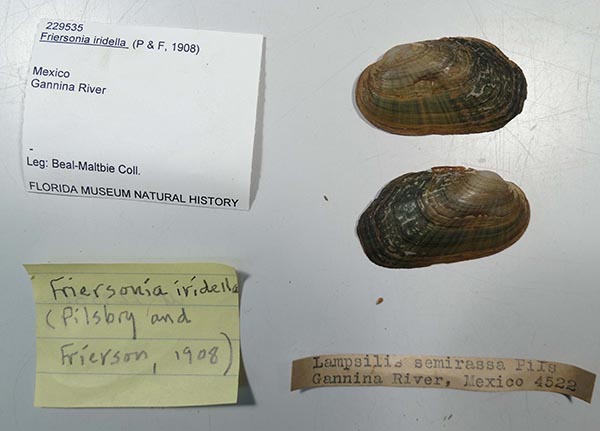 229535
Friersonia iridella (P & F, 1908)
Mexico
Gannina River
-
Leg: Beal-Maltbie Coll.
FLORIDA MUSEUM NATURAL HISTORY
Friersonia iridella
(Pilsbry and
Frierson, 1908)
Lampsilis semirassa Pils
Gannina River, Mexico 4522